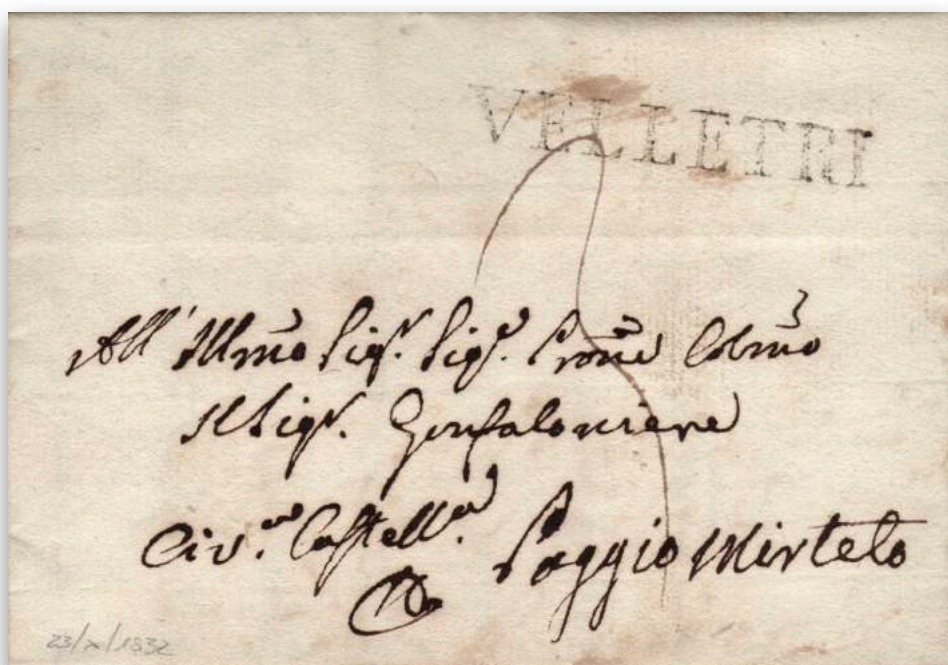 VELLETRI
All' Illmo Sigr. Sigr. Prone Colmo
Il Sigr. Gonfaloniere
Civ.a Castell.a
Poggio Mirteto
23/X/1832